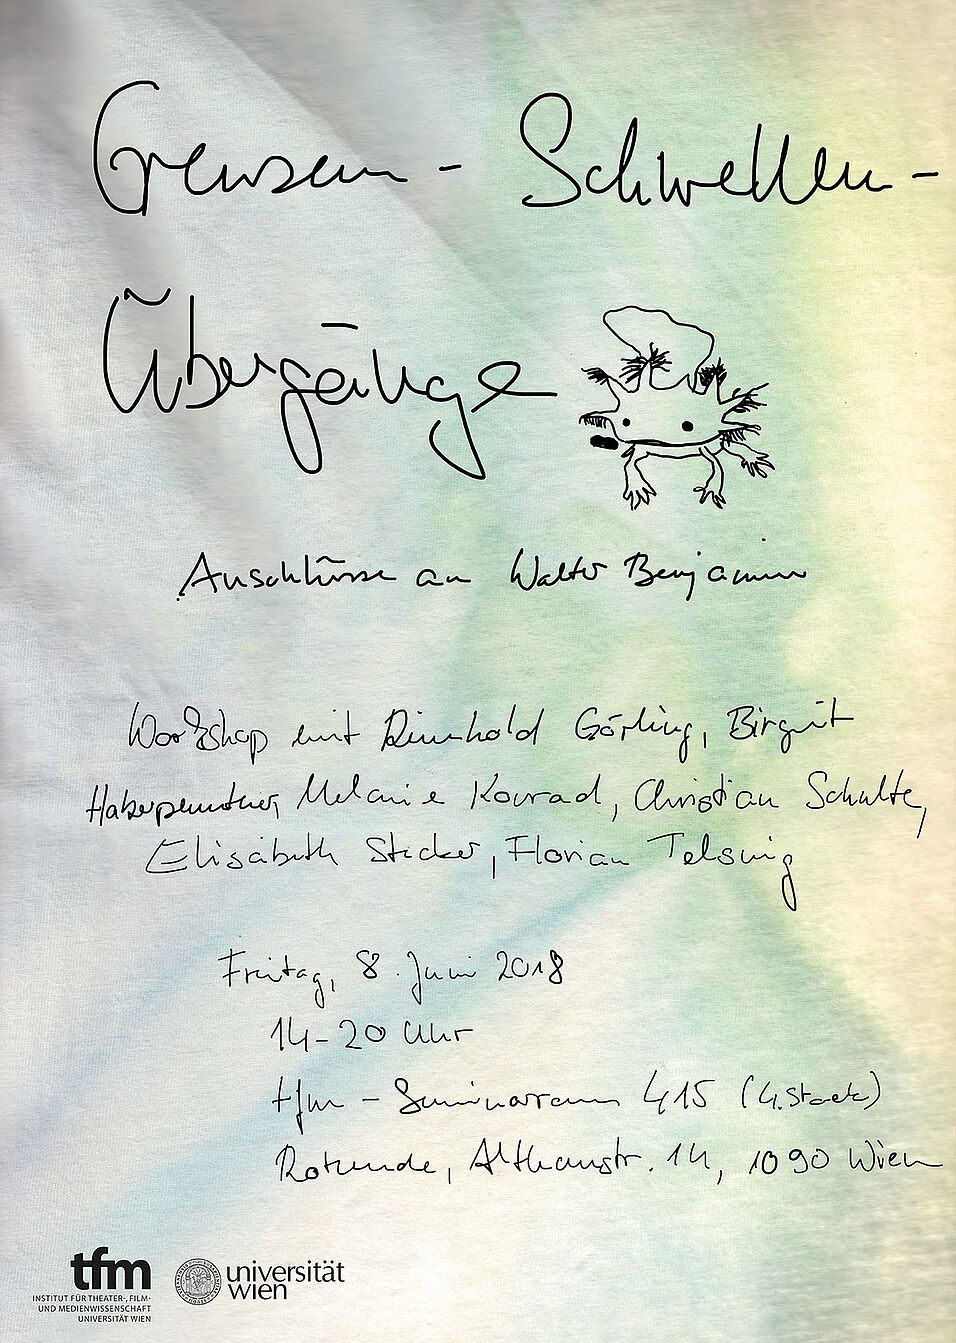 Grenzen - Schwellen -
Übergänge
Anschlüsse an Walter Benjamin
Workshop mit Reinhold Görling, Birgit
Haberpeuntner, Melanie Konrad, Christian Schulte,
Elisabeth Stecker, Florian Telsnig
Freitag, 8. Juni 2018
14-20 Uhr
tfm - Seminarraum 415 (4. Stock)
Rotunde, Althanstr. 14, 1090 Wien
tfm
INSTITUT FÜR THEATER-, FILM-
UND MEDIENWISSENSCHAFT
UNIVERSITÄT WIEN
universität
wien